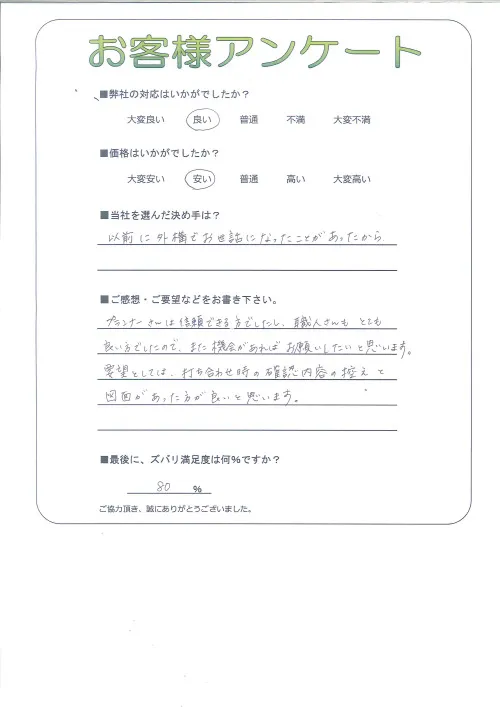 お客様アンケート
■弊社の対応はいかがでしたか？
大変良い 良い 普通 不満 大変不満
■価格はいかがでしたか？
大変安い 安い 普通 高い 大変高い
■当社を選んだ決め手は？
以前に外構でお世話になったことがあったから
■ご感想・ご要望などをお書き下さい。
プランナーさんは信頼できる方でしたし、職人さんもとても
良い方でしたので、また機会があればお願いしたいと思います。
要望としては、打ち合わせ時の確認内容の控えと
図面があった方が良いと思います。
■最後に、ズバリ満足度は何%ですか？
80 %
ご協力頂き、誠にありがとうございました。